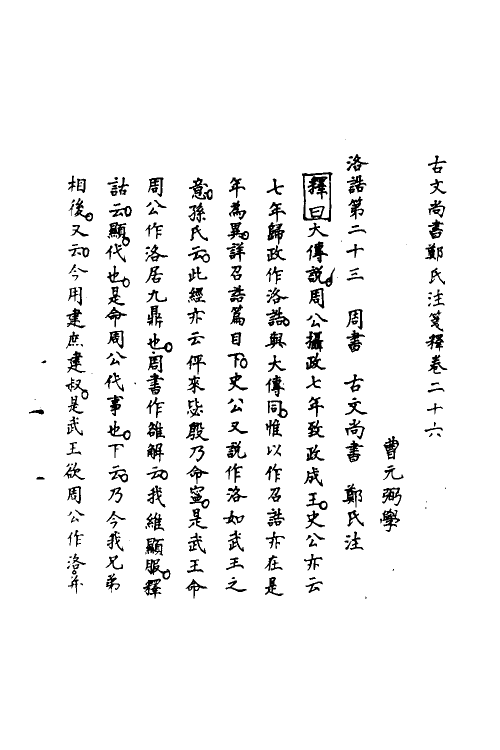 古文尚書鄭氏注箋釋卷二十六
曹元弼學
洛誥第二十三　周書　古文尚書　鄭氏注
釋曰大傳說周公攝政七年致政成王。史公亦云
七年歸政作洛誥。與大傳同。惟以作召誥亦在是
年為異。詳召誥篇目下。史公又說作洛如武王之
意。孫氏云。此經亦云伻來毖殷乃命寧。是武王命
周公作洛居九鼎也。周書作雒解云。我維顯服。釋
詁云。顯。代也。是命周公代事也。下云。乃今我兄弟
相後。又云。今用建庶建叔。是武王欲周公作洛。并